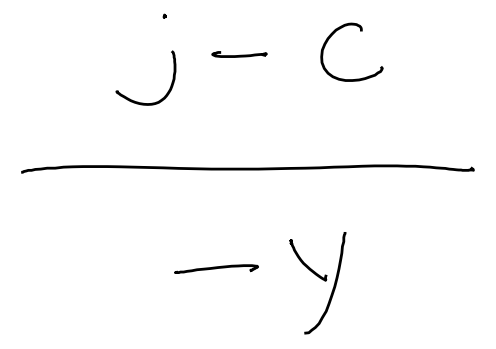 j - c
- y